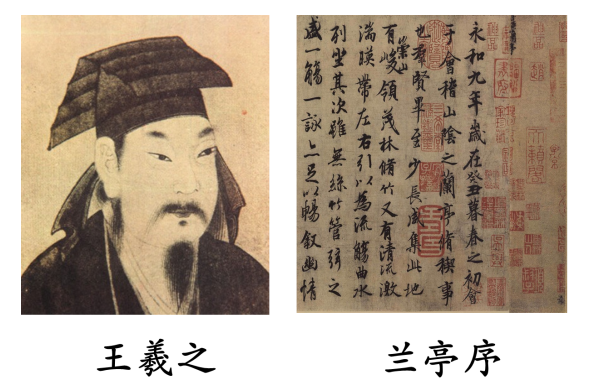 永和九年歲在癸丑暮春之初會
于會稽山陰之蘭亭脩稧事
也羣賢畢至少長咸集此地
有崇山峻領茂林脩竹又有清流激
湍暎帶左右引以為流觴曲水
列坐其次雖無絲竹管弦之
盛一觴一詠亦足以暢叙幽情
王羲之
兰亭序